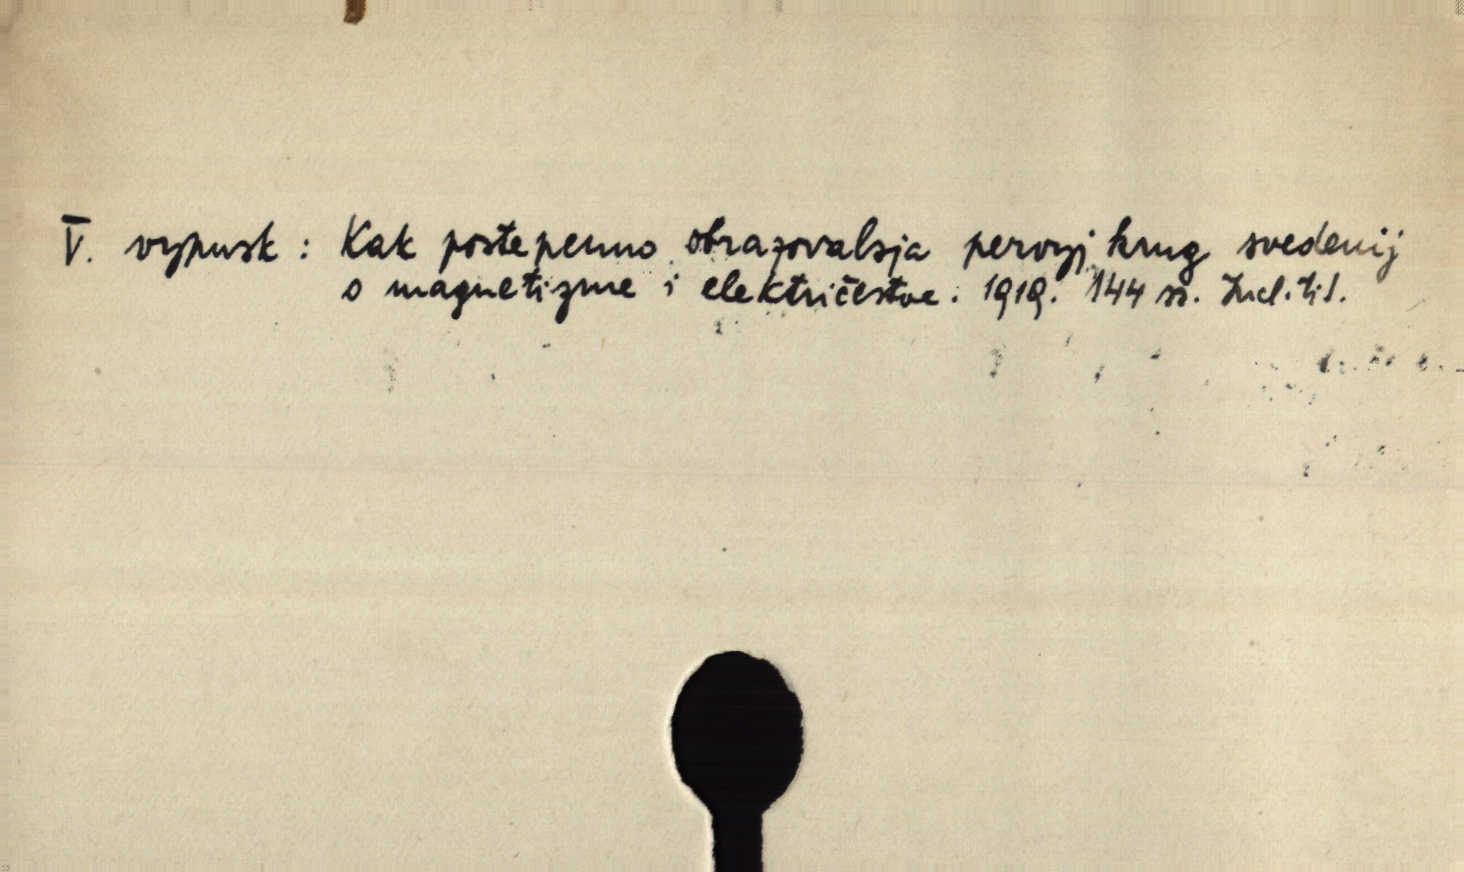 V. vypusk: Kak postepenno obrazovalsja pervyj krug svedenij
o magnetizme i električestve. 1919. 144 ss. Incl. tit.